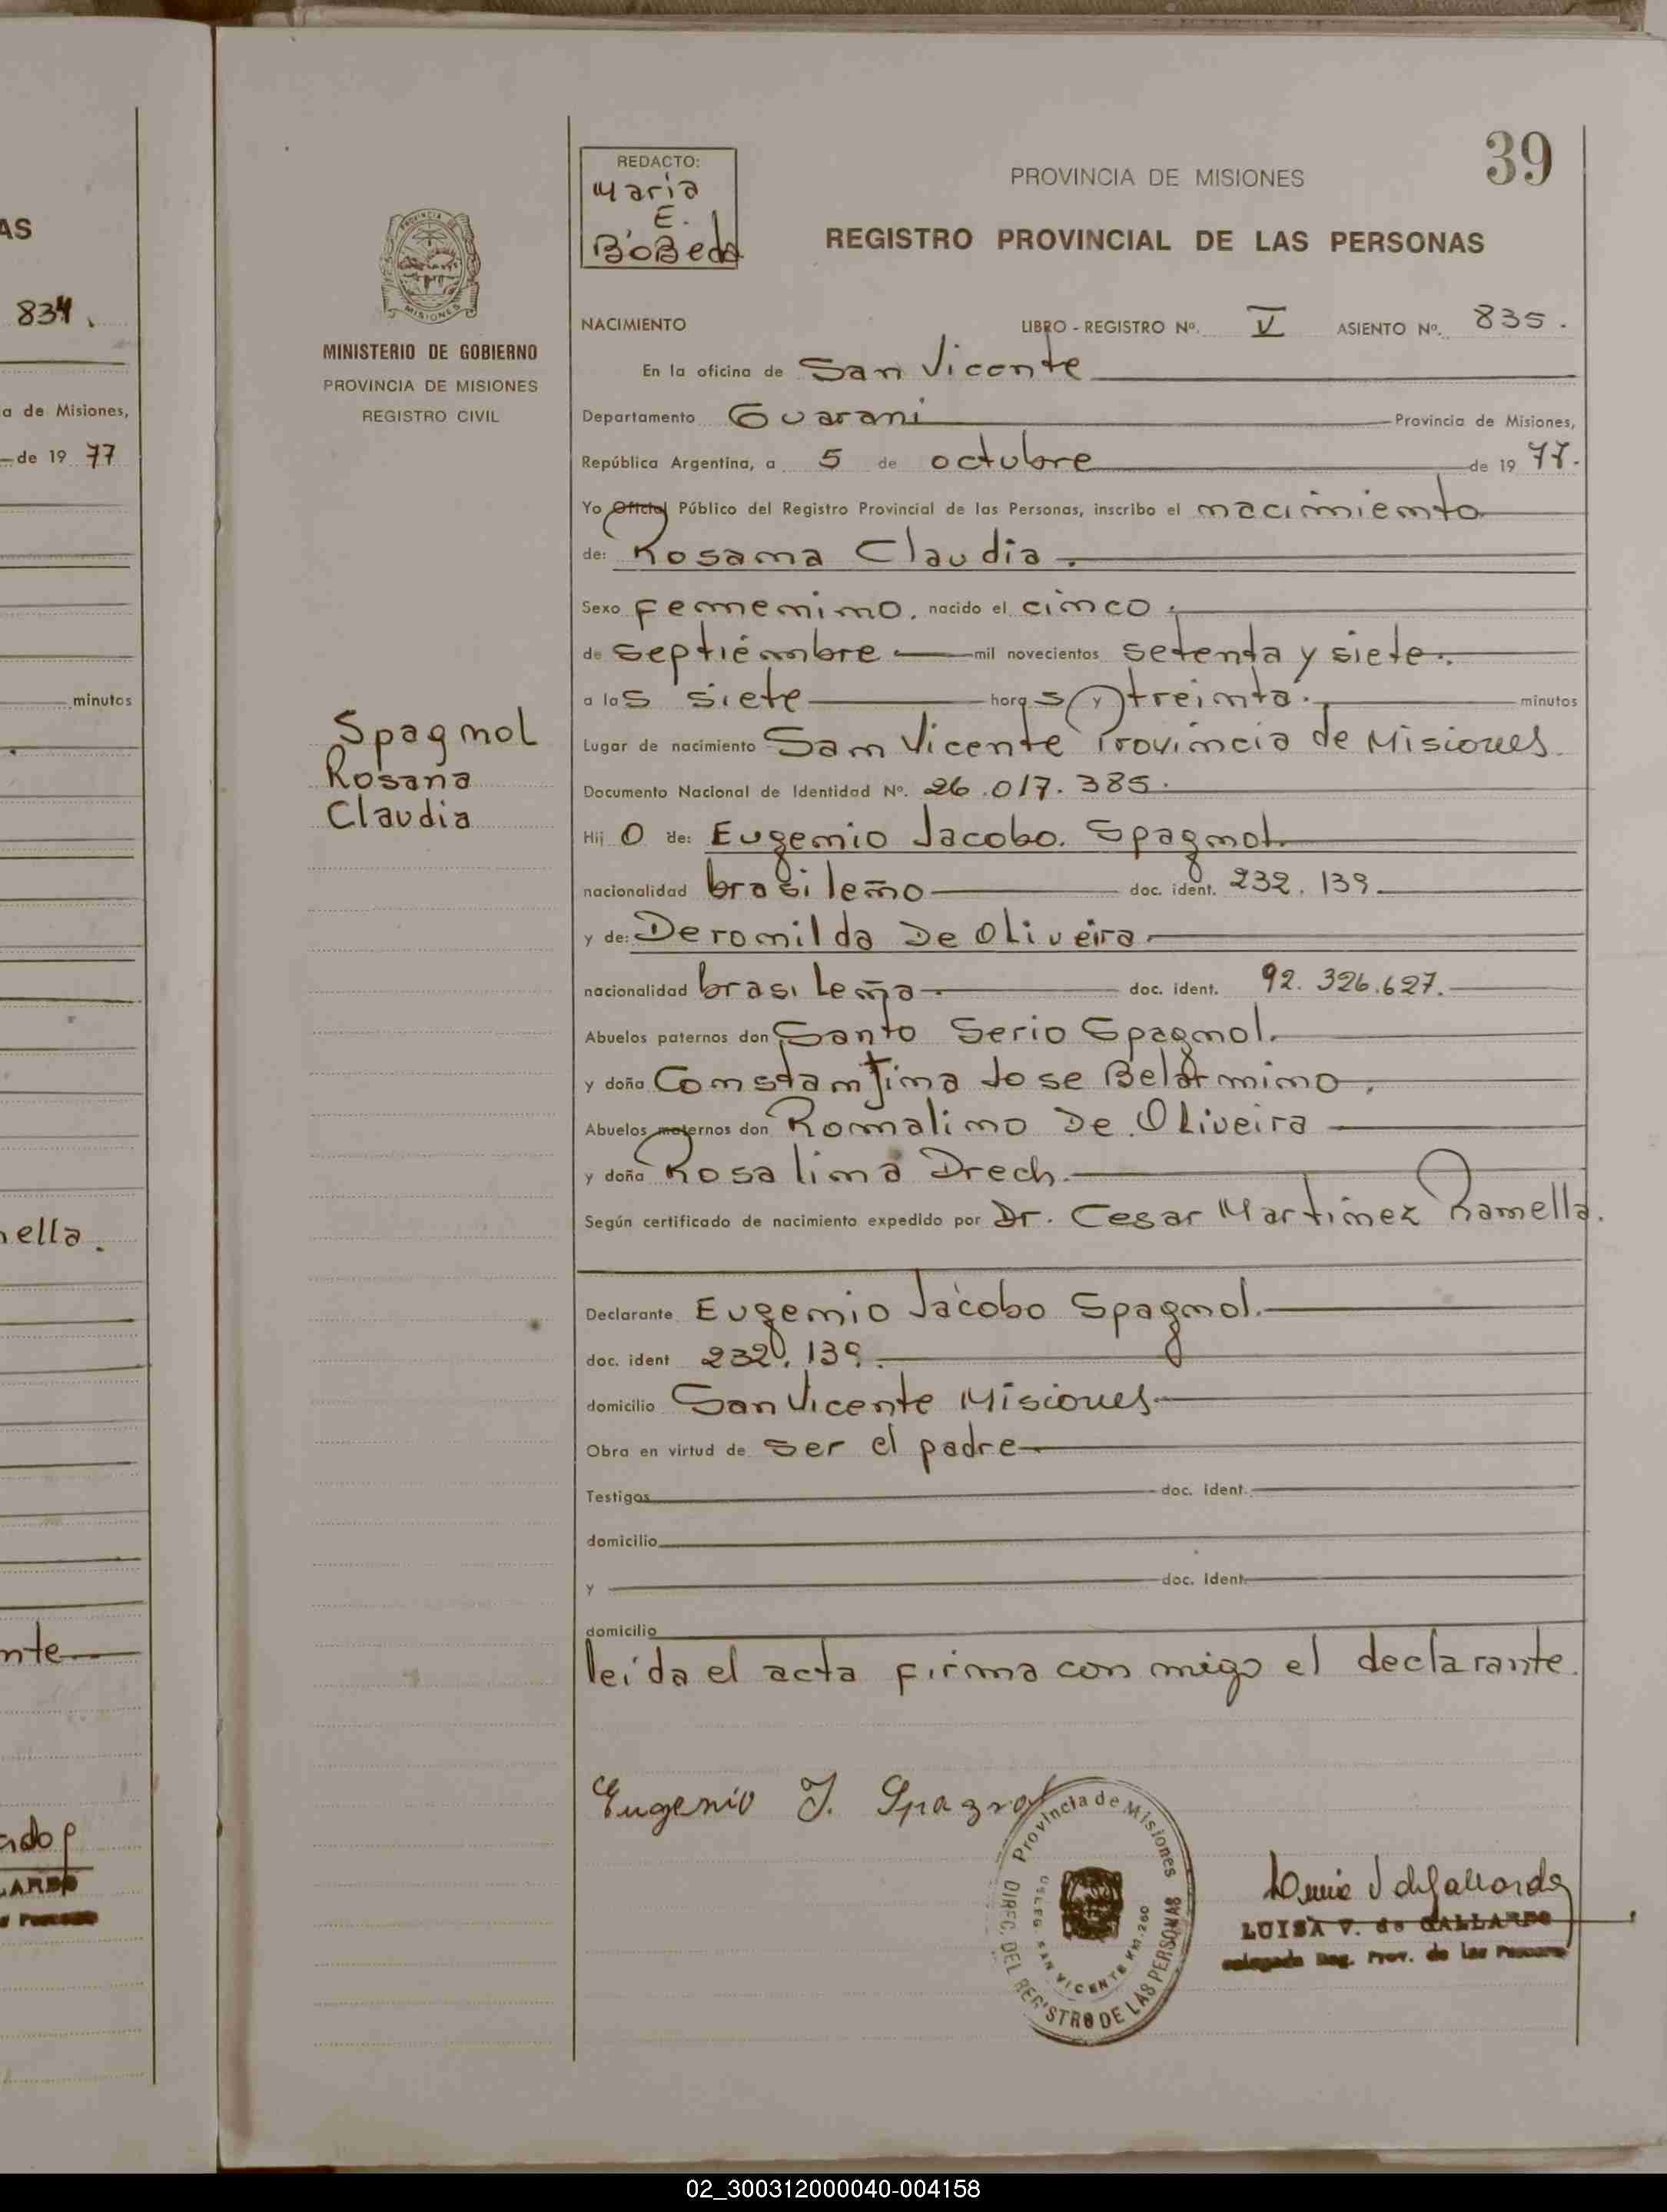 AS
834.
a de Misiones,
de 19 77
minutos
ella.
nte
39
REDACTO:
Maria
E.
BóBeda
PROVINCIA DE MISIONES
REGISTRO PROVINCIAL DE LAS PERSONAS
PROVINCIA DE
MISIONES
MINISTERIO DE GOBIERNO
PROVINCIA DE MISIONES
REGISTRO CIVIL
NACIMIENTO LIBRO - REGISTRO Nº. V ASIENTO Nº. 835.
En la oficina de San Vicente
Departamento Guarani Provincia de Misiones,
República Argentina, a 5 de octubre de 19 77.
Yo Oficial Público del Registro Provincial de las Personas, inscribo el nacimiento
de: Rosana Claudia.
Sexo femenino. nacido el cinco.
de septiémbre mil novecientos setenta y siete.
a las siete horas y treinta. minutos
Spagnol
Rosana
Claudia
Lugar de nacimiento San Vicente Provincia de Misiones.
Documento Nacional de Identidad Nº. 26.017.385.
Hij o de: Eugenio Jacobo. Spagnol.
nacionalidad brasileño doc. ident. 232.139.
y de: Deronilda De Oliveira.
nacionalidad brasileña doc. ident. 92.326.627.
Abuelos paternos don Santo Serio Spagnol.
y doña Constantina Jose Belarmino.
Abuelos maternos don Romalino De Oliveira
y doña Rosalina Drech.
Según certificado de nacimiento expedido por Dr. Cesar Martinez Ramella.
Declarante Eugenio Jacobo Spagnol.
doc. ident 232.139.
domicilio San Vicente Misiones
Obra en virtud de ser el padre
Testigos doc. ident.
domicilio
y doc. ident.
domicilio
leída el acta firma con migo el declarante.
Eugenio J. Spagnol
Provincia de Misiones
DIREC. DEL REGISTRO DE LAS PERSONAS
SAN VICENTE KM. 260
LUISA V. de GALLARDO
Reg. Prov. de las Personas
02_300312000040-004158